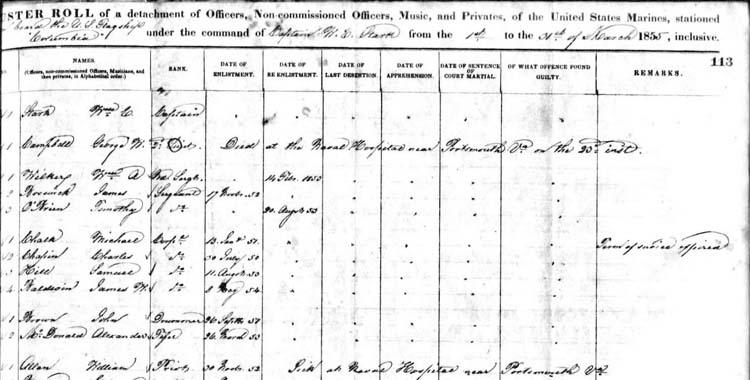 STER ROLL of a detachment of Officers, Non-commissioned Officers, Music, and Privates, of the United States Marines, stationed
board the U. S. Flagship
Columbia under the command of Captain W. E. Stark from the 1st to the 31st of March 1855, inclusive.
113
NAMES. RANK. DATE OF ENLISTMENT. DATE OF RE ENLISTMENT. DATE OF LAST DESERTION. DATE OF APPREHENSION. DATE OF SENTENCE OF COURT MARTIAL. OF WHAT OFFENCE FOUND GUILTY. REMARKS.
(Officers, non-commissioned Officers, Musicians, and then privates, in Alphabetical order.)
1 Stark Wm E. Captain
1 Campbell George W. 2d Lieut. Died at the Naval Hospital near Portsmouth Va on the 23d inst.
1 Wilkes Wm A Ord Sergt. 14 Feb. 1853
2 James Sergeant 17 Novr. 52
3 O'Brien Timothy Do. 20 Augt 53
1 Chalk Michael Corpl. 13 Jany 51 Term of service expired
2 Chapin Charles Do 30 July 50
3 Hill Samuel Do 11 Augt 53
4 James W. Do 8 May 54
1 Brown John Drummer 26 Septr 51
2 McDonald Alexander Fifer 26 53
1 Allan William Privt. 30 Novr. 52 Sick at Naval Hospital near Portsmouth Va.